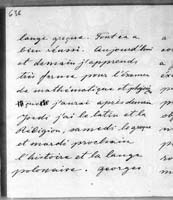 636
langé grecque. Tout a
bien réussi. Aujourd'hui
et demain j'apprends,
très ferme, pour l'examen
de mathématique et physi
j'aurai après demain
Jeudi j'ai le latin et la
Réligion, samedi le grecque
et mardi prochain
l'histoire et la langue
polonaire. Georges